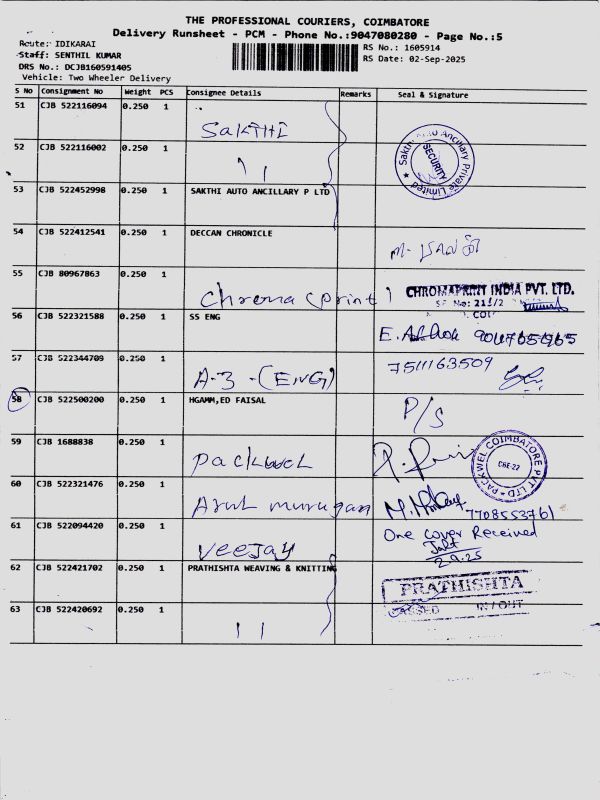 THE PROFESSIONAL COURIERS, COIMBATORE
Delivery Runsheet - PCM - Phone No.:9047080280 - Page No.:5
Route: IDIKARAI
Staff: SENTHIL KUMAR
DRS No.: DCJB160591405
Vehicle: Two Wheeler Delivery
RS No.: 1605914
RS Date: 02-Sep-2025
S No Consignment No Weight PCS Consignee Details Remarks Seal & Signature
51 CJB 522116094 0.250 1 SAKTHI
52 CJB 522116002 0.250 1 11
Sakthi Auto Ancillary Private Limited
SECURITY
53 CJB 522452998 0.250 1 SAKTHI AUTO ANCILLARY P LTD
54 CJB 522412541 0.250 1 DECCAN CHRONICLE
55 CJB 80967863 0.250 1 Chroma print
CHROMAPRINT INDIA PVT. LTD.
56 CJB 522321588 0.250 1 SS ENG E. Ashok
57 CJB 522344709 0.250 1 A-3 - (ENG) 7511163509
58 CJB 522500200 0.250 1 HGAMM,ED FAISAL P/S
59 CJB 1688838 0.250 1 packwel
PACKWEL COIMBATORE PVT LTD
CBE-22
60 CJB 522321476 0.250 1 Arul murugan 7708553761
61 CJB 522094420 0.250 1 Veejay One cover Received
2.9.25
62 CJB 522421702 0.250 1 PRATHISHTA WEAVING & KNITTING
PRATHISHTA
PASSED IN/OUT
63 CJB 522420692 0.250 1 11